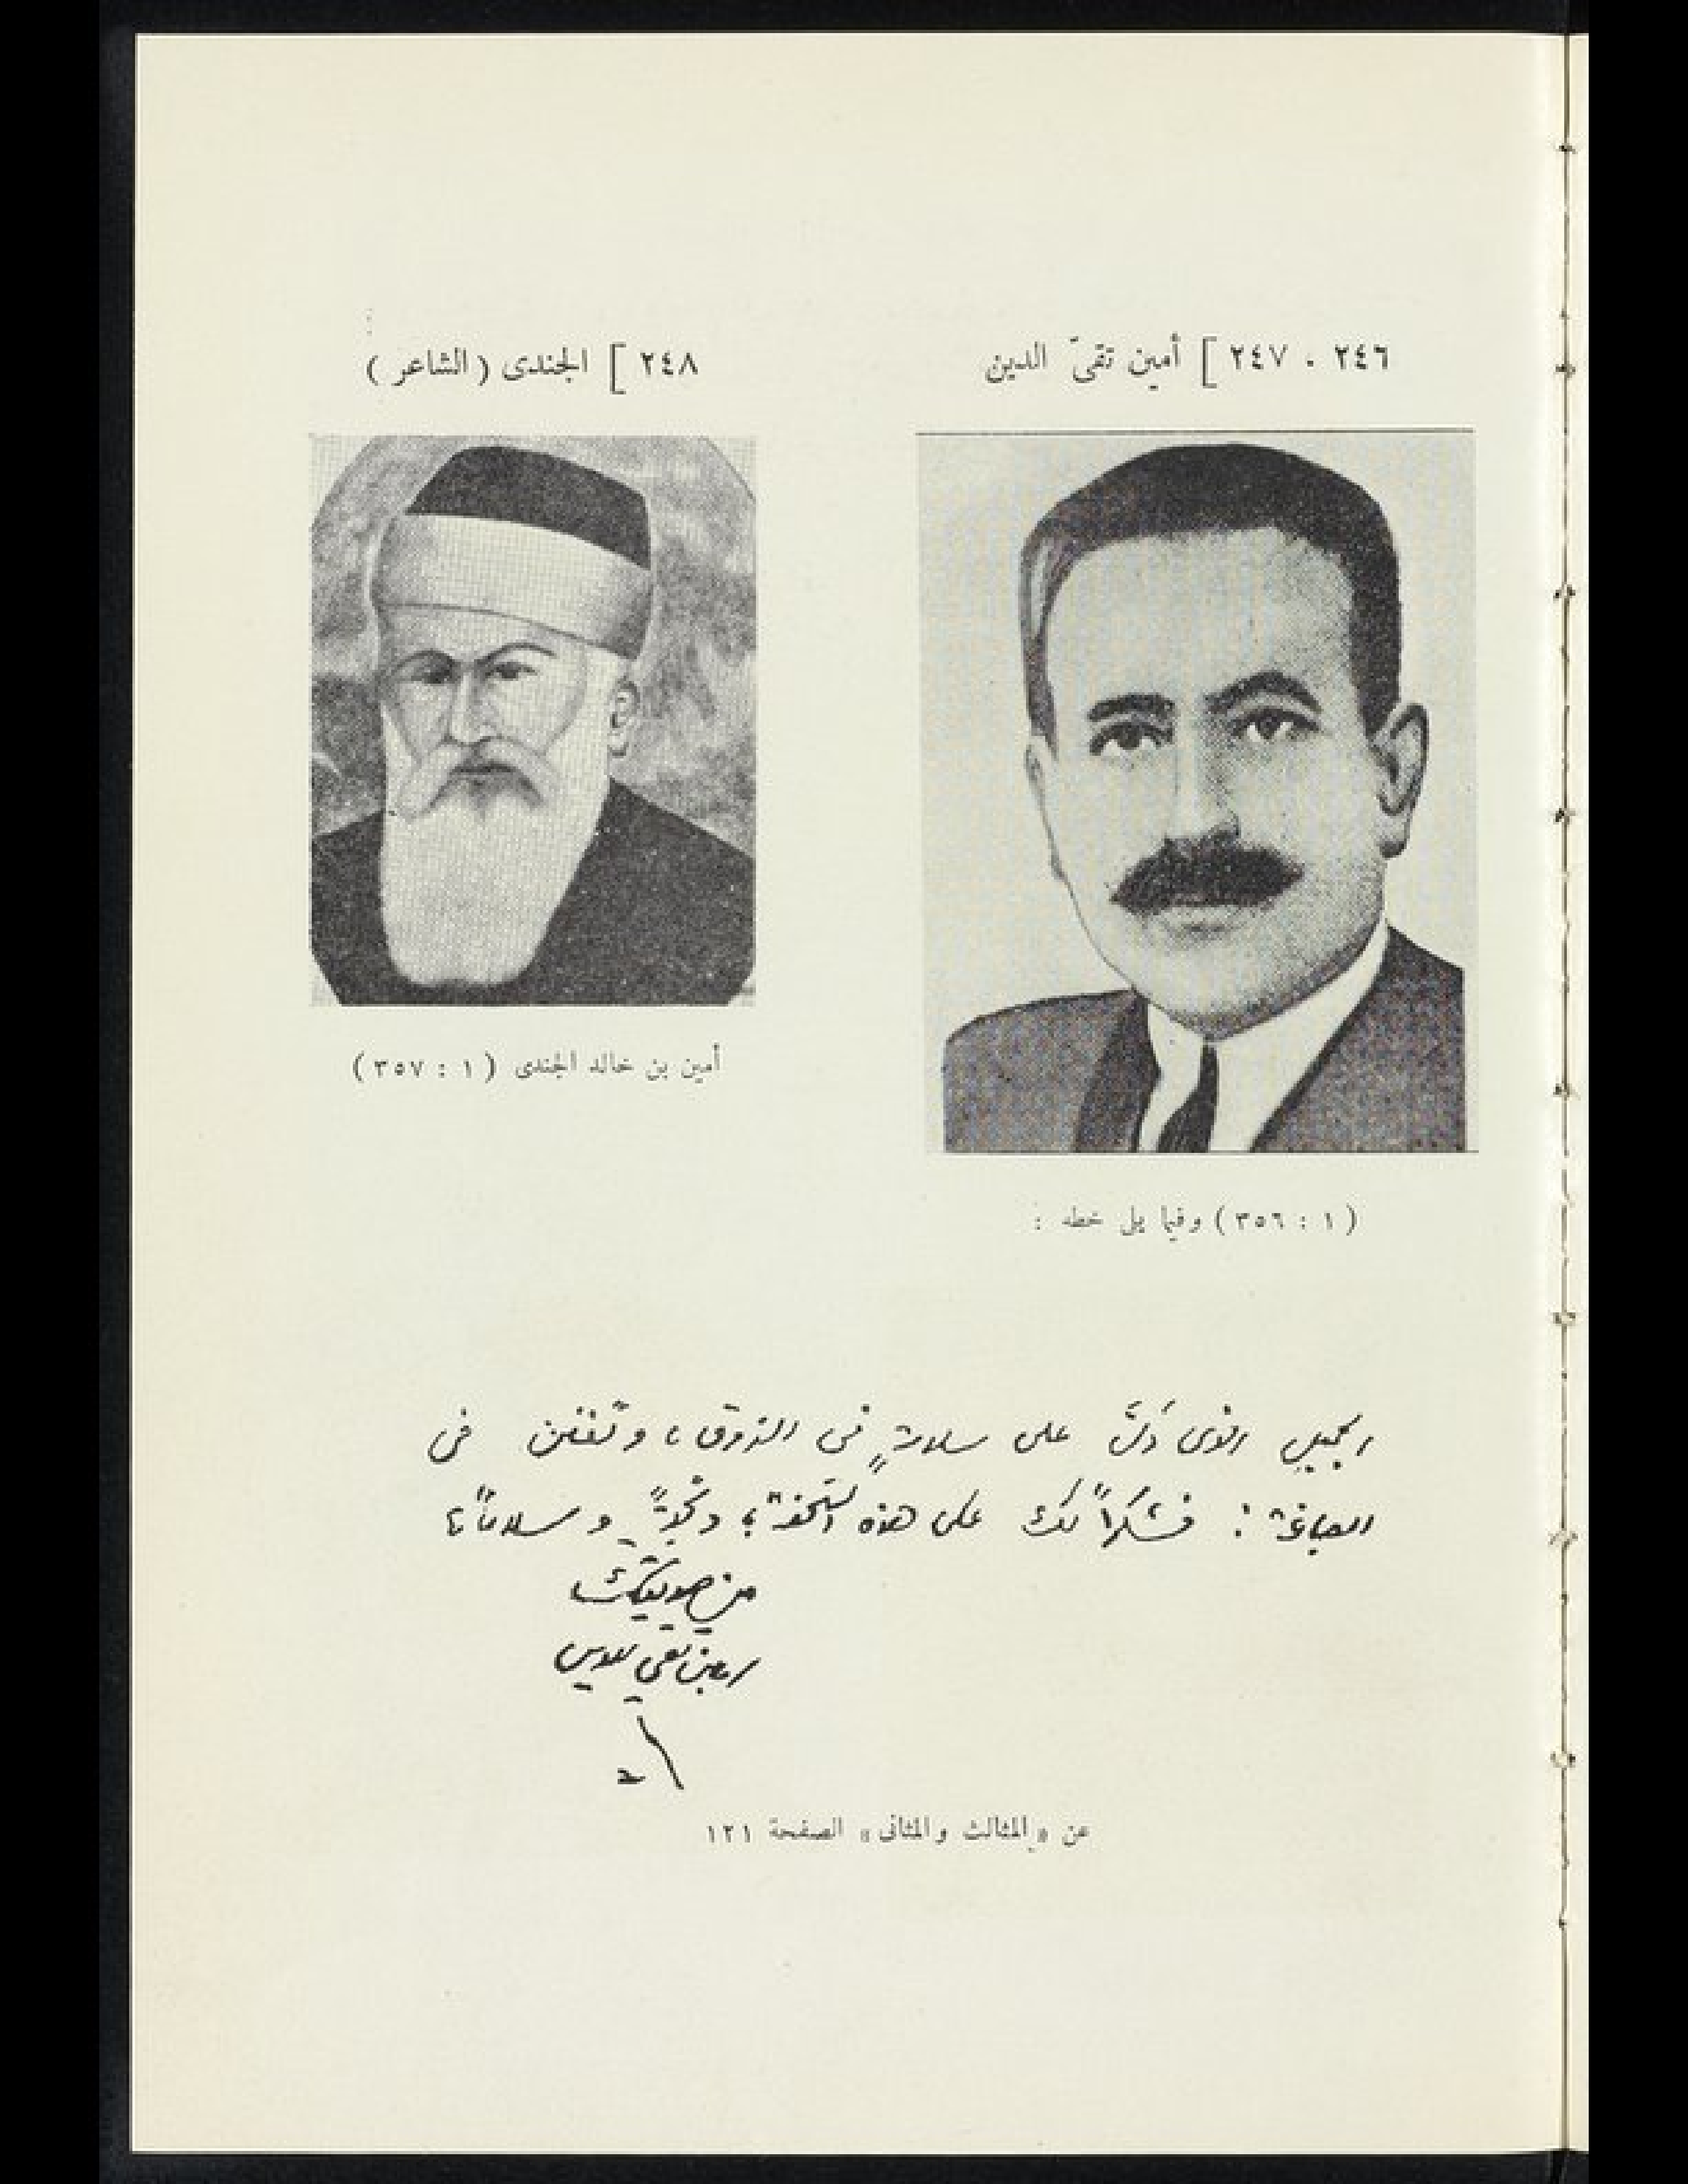 ٢٤٦ ، ٢٤٧ ] أمين تقىّ الدين
( ١ : ٣٥٦ ) وفيما يلى خطه :
٢٤٨ ] الجندى ( الشاعر )
أمين بن خالد الجندى ( ١ : ٣٥٧ )
الجميل الذى دلّ على سلامةٍ فى الذوق ، وتفنن فى
الصياغة : فشكراً لك على هذه التحفة ؛ وتحيةً وسلاماً ،
من صديقك
امين تقي الدين
عن « المثالث والمثانى » الصفحة ١٢١